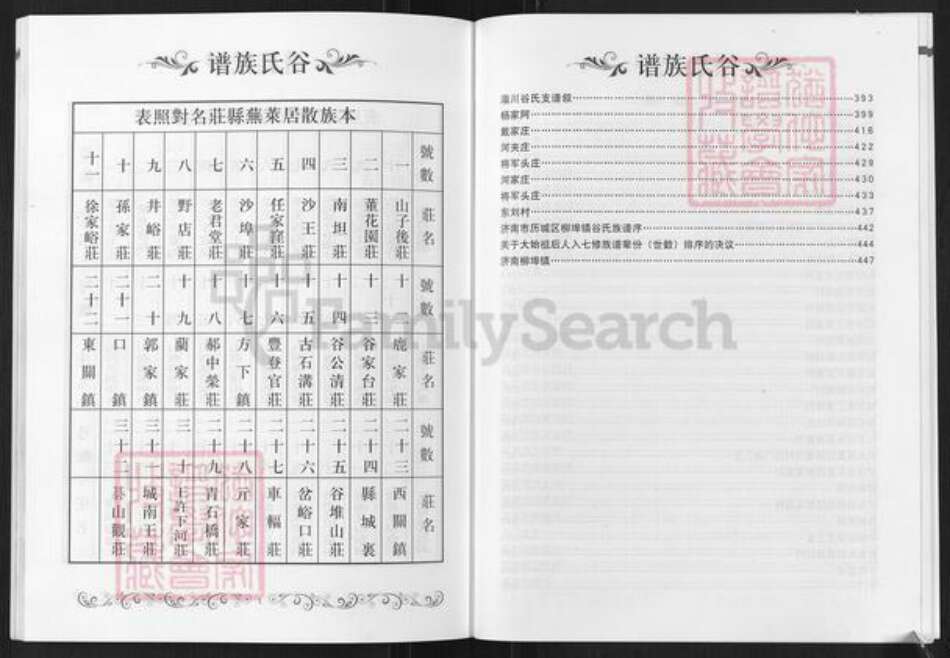 谱族氏谷
表照對名莊縣蕪萊居散族本
號數 一 二 三 四 五 六 七 八 九 十 十一
莊名 山子後莊 董花園莊 南坦莊 沙王莊 任家窪莊 沙埠莊 老君堂莊 野店莊 井峪莊 孫家莊 徐家峪莊
號數 十二 十三 十四 十五 十六 十七 十八 十九 二十 二十一 二十二
莊名 鹿家莊 谷家台莊 谷公清莊 古石溝莊 豐登官莊 方下鎮 郝中榮莊 蘭家莊 郭家鎮 口鎮 東關鎮
號數 二十三 二十四 二十五 二十六 二十七 二十八 二十九 三十 三十一 三十二
莊名 西關鎮 縣城裏 谷堆山莊 岔峪口莊 車輻莊 元家莊 青石橋莊 王許下河莊 城南王莊 碁山觀莊
谱族氏谷
淄川谷氏支谱叙 393
杨家阿 399
戴家庄 416
河夹庄 422
将军头庄 429
河家庄 430
将军头庄 433
东刘村 437
济南市历城区柳埠镇谷氏族谱序 442
关于大始祖后人入七修族谱辈份（世数）排序的决议 444
济南柳埠镇 447
FamilySearch